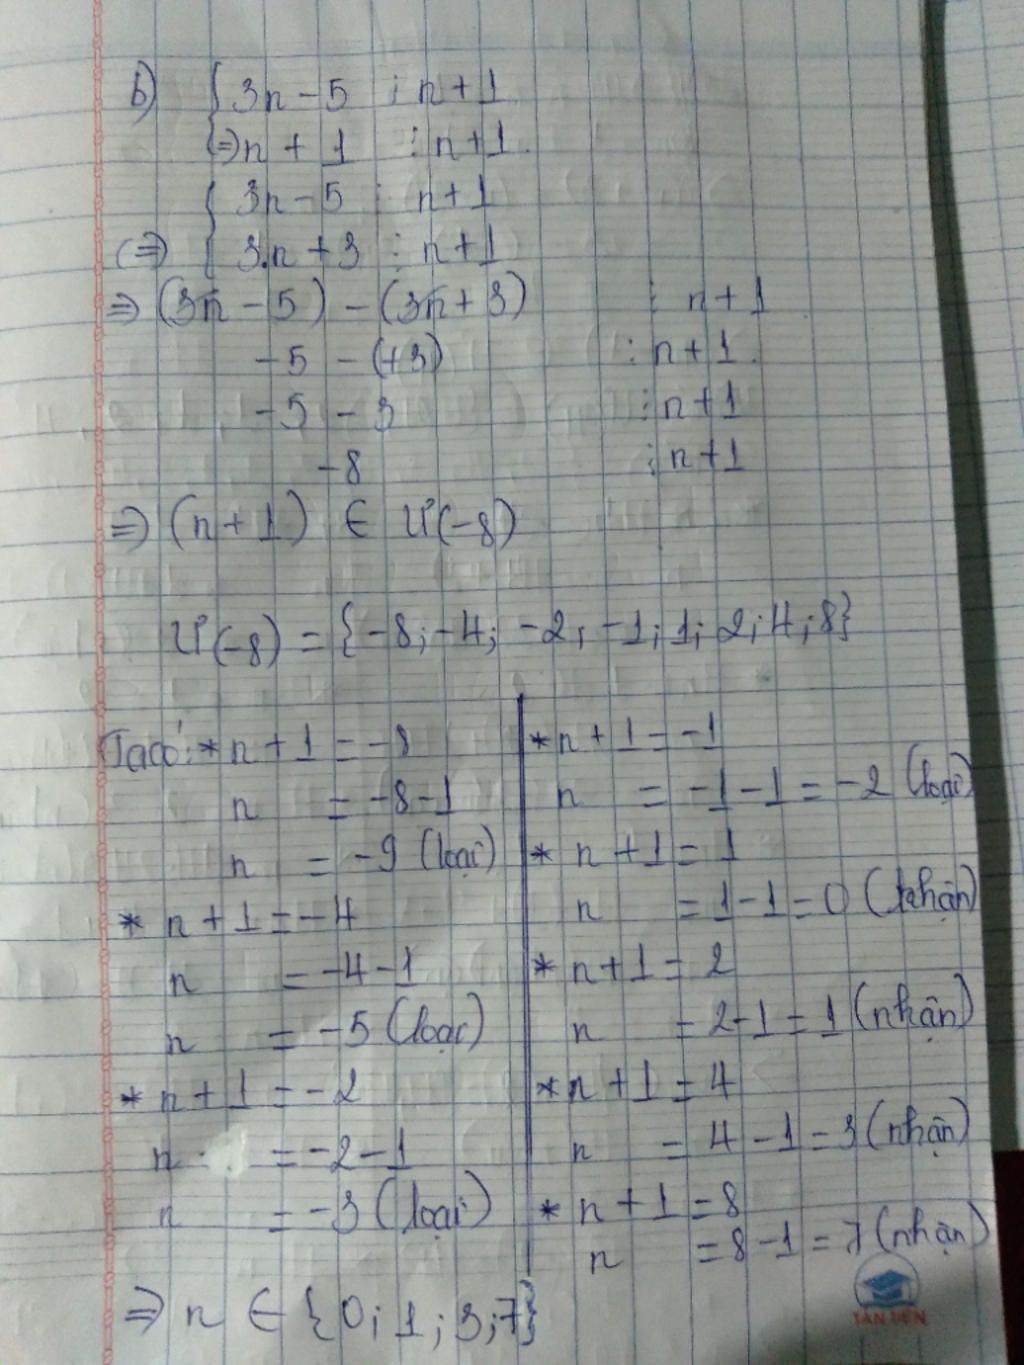 b) { 3n - 5 ⋮ n + 1
⇒ n + 1 ⋮ n + 1.
{ 3n - 5 ⋮ n + 1
(⇒) { 3.n + 3 ⋮ n + 1
⇒ (3n - 5) - (3n + 3) ⋮ n + 1
- 5 - (+3) ⋮ n + 1.
- 5 - 3 ⋮ n + 1
- 8 ⋮ n + 1
⇒ (n + 1) ∈ Ư(-8)
Ư(-8) = {-8; -4; -2; -1; 1; 2; 4; 8}
Ta có: * n + 1 = -8
n = -8 - 1
n = -9 (loại)
* n + 1 = -4
n = -4 - 1
n = -5 (loại)
* n + 1 = -2
n = -2 - 1
n = -3 (loại)
* n + 1 = -1
n = -1 - 1 = -2 (loại)
* n + 1 = 1
n = 1 - 1 = 0 (nhận)
* n + 1 = 2
n = 2 - 1 = 1 (nhận)
* n + 1 = 4
n = 4 - 1 = 3 (nhận)
* n + 1 = 8
n = 8 - 1 = 7 (nhận)
⇒ n ∈ {0; 1; 3; 7}